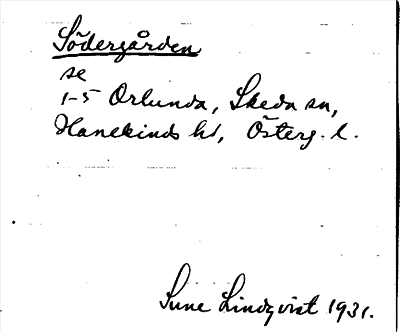 Södergården
se
1-5 Orlunda, Skeda sn,
Hanekinds hd, Österg. l.
Sune Lindqvist 1931.